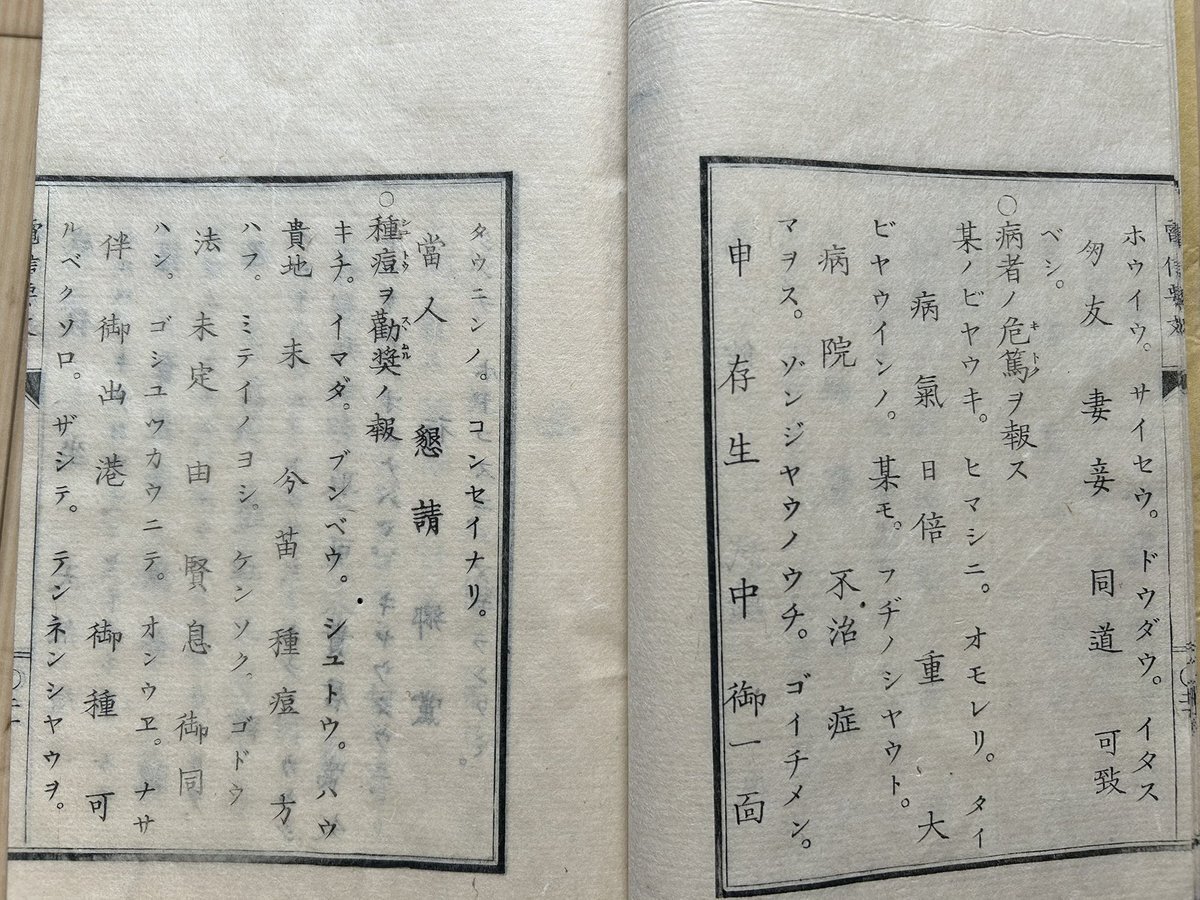 ホウイウ。サイセウ。ドウダウ。イタス
匆友妻妾同道可致
ベシ。
○病者ノ危篤ヲ報ス
キトク
某ノビヤウキ。ヒマシニ。オモレリ。タイ
病氣日倍重大
ビヤウインノ。某モ。フヂノシヤウト。
病院不治症
マヲス。ゾンジヤウノウチ。ゴイチメン。
申存生中御一面
タウニンノ。コンセイナリ。
當人懇請
○種痘ヲ勸奨ノ報
シユトウ スヽムル
キチ。イマダ。ブンベウ。シユトウ。ハウ
貴地未分苗種痘方
ハフ。ミテイノヨシ。ケンソク。ゴドウ
法未定由賢息御同
ハン。ゴシユツカウニテ。オンウヱ。ナサ
伴御出港御種可
ルベクソロ。ザシテ。テンネンシヤウヲ。